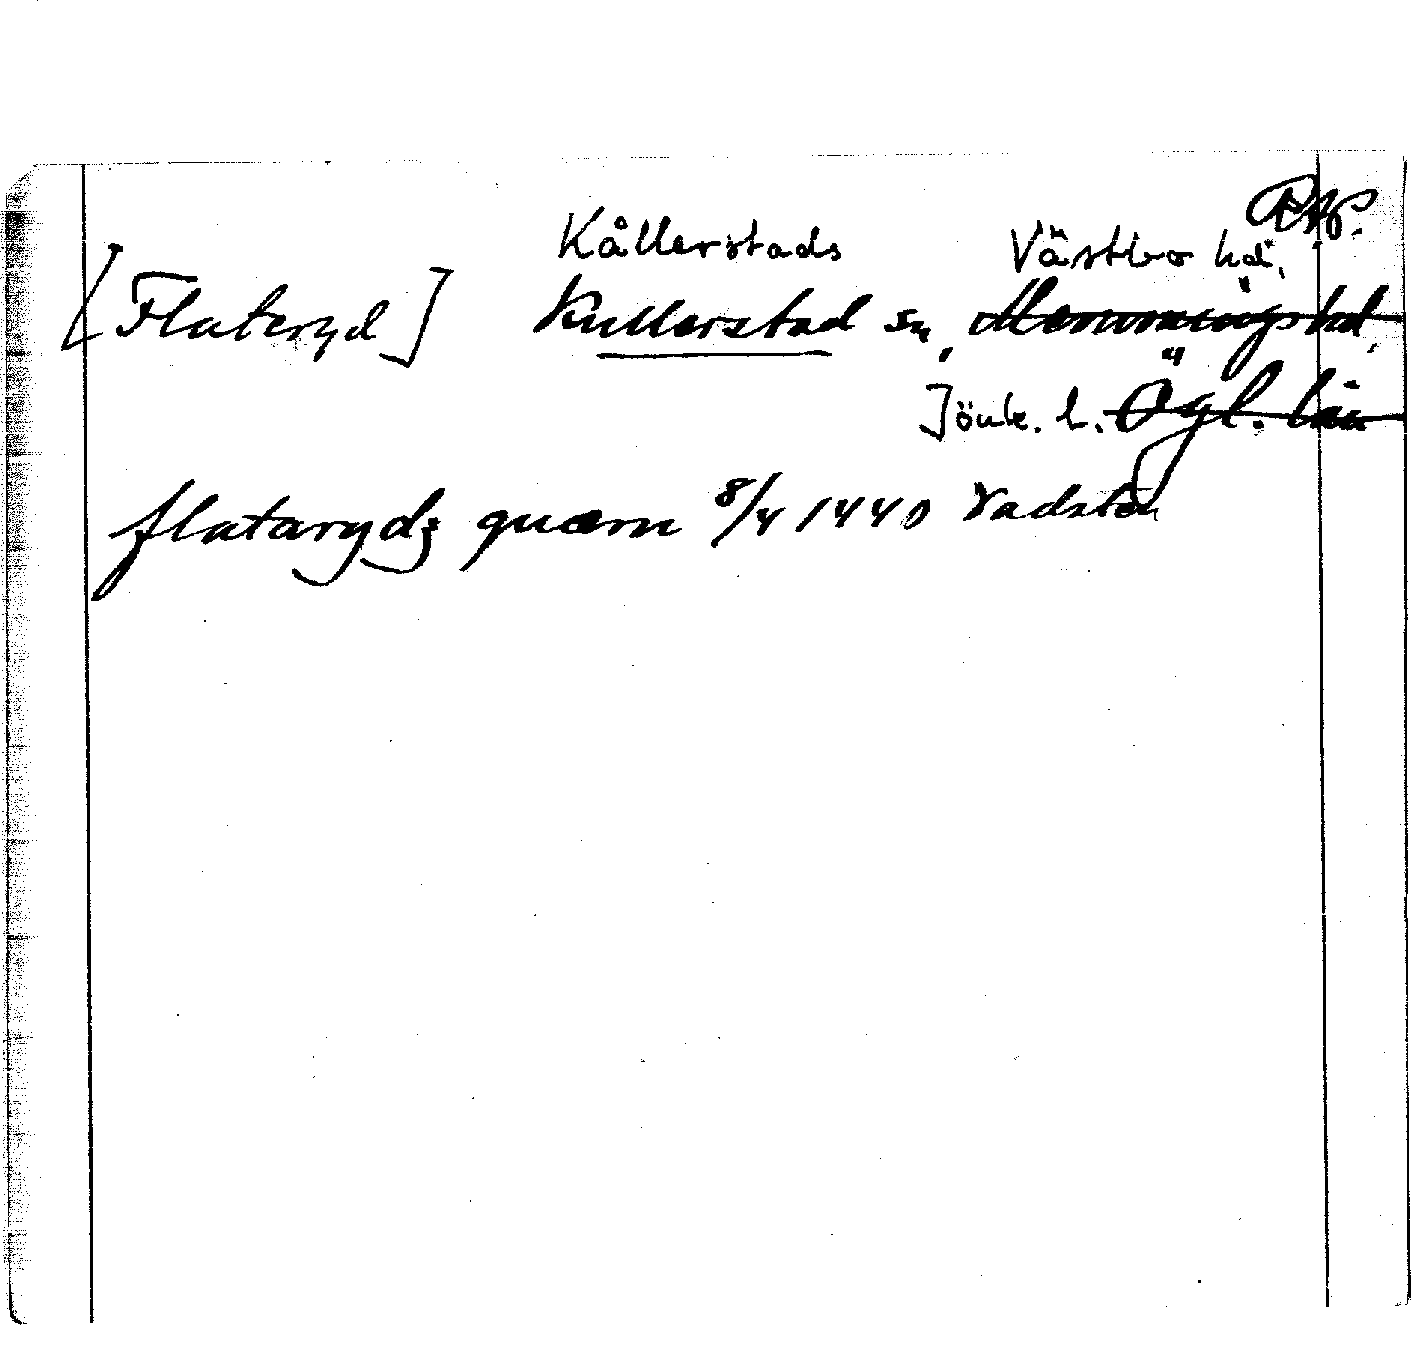 Kållerstads Västbo hd,
[Flateryd] Kullerstad sn, Memmings hd,
Jönk. l. Ögl. län
flatarydz quærn 8/4 1440 Vadsten